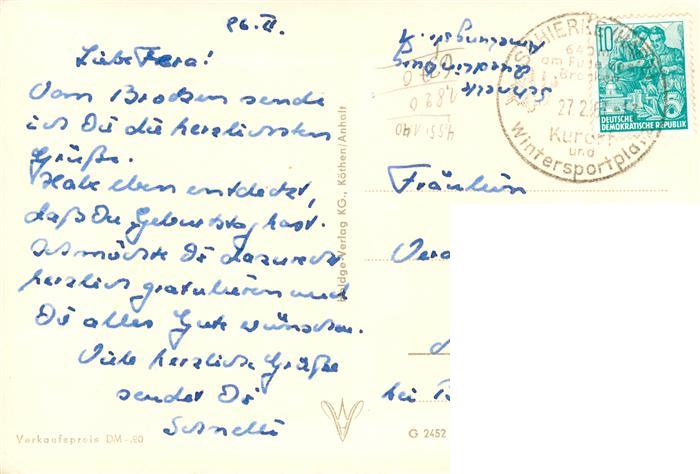 26. II.
Liebe Vera!
Vom Brocken sende
ich Dir die herzlichsten
Grüße.
Habe eben entdeckt,
daß Du Geburtstag hast.
Ich möchte Dir dazu recht
herzlich gratulieren und
Dir alles Gute wünschen.
Viele herzliche Grüße
sendet Dir
Verkaufspreis DM -.20
Holdge-Verlag KG., Köthen/Anhalt
Quedlinburg
SCHIERKE
640 m
am Fuße
Brocken
27.2.
Kurort
und
Wintersportplatz
10
DEUTSCHE
DEMOKRATISCHE REPUBLIK
Fräulein
Vera
bei B
G 2452